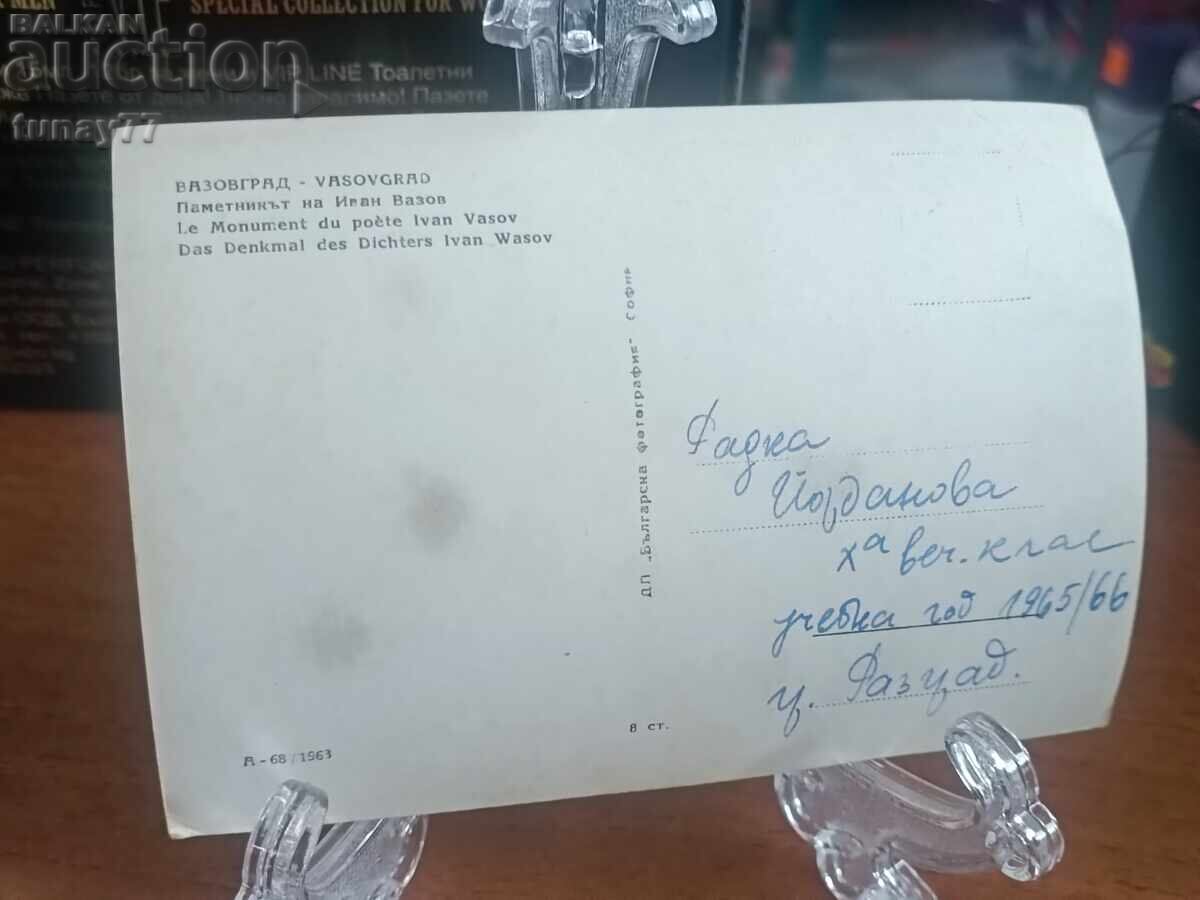 BALKAN
auction
tunay77
MEN
SPECIAL COLLECTION FOR
VIP LINE Тоалетни
ВАЗОВГРАД - VASOVGRAD
Паметникът на Иван Вазов
Le Monument du poète Ivan Vasov
Das Denkmal des Dichters Ivan Wasov
ДП „Българска фотография" София
Радка
Йорданова
Xа веч. клас
учебна год 1965/66
гр. Разград.
8 ст.
А - 68 / 1963